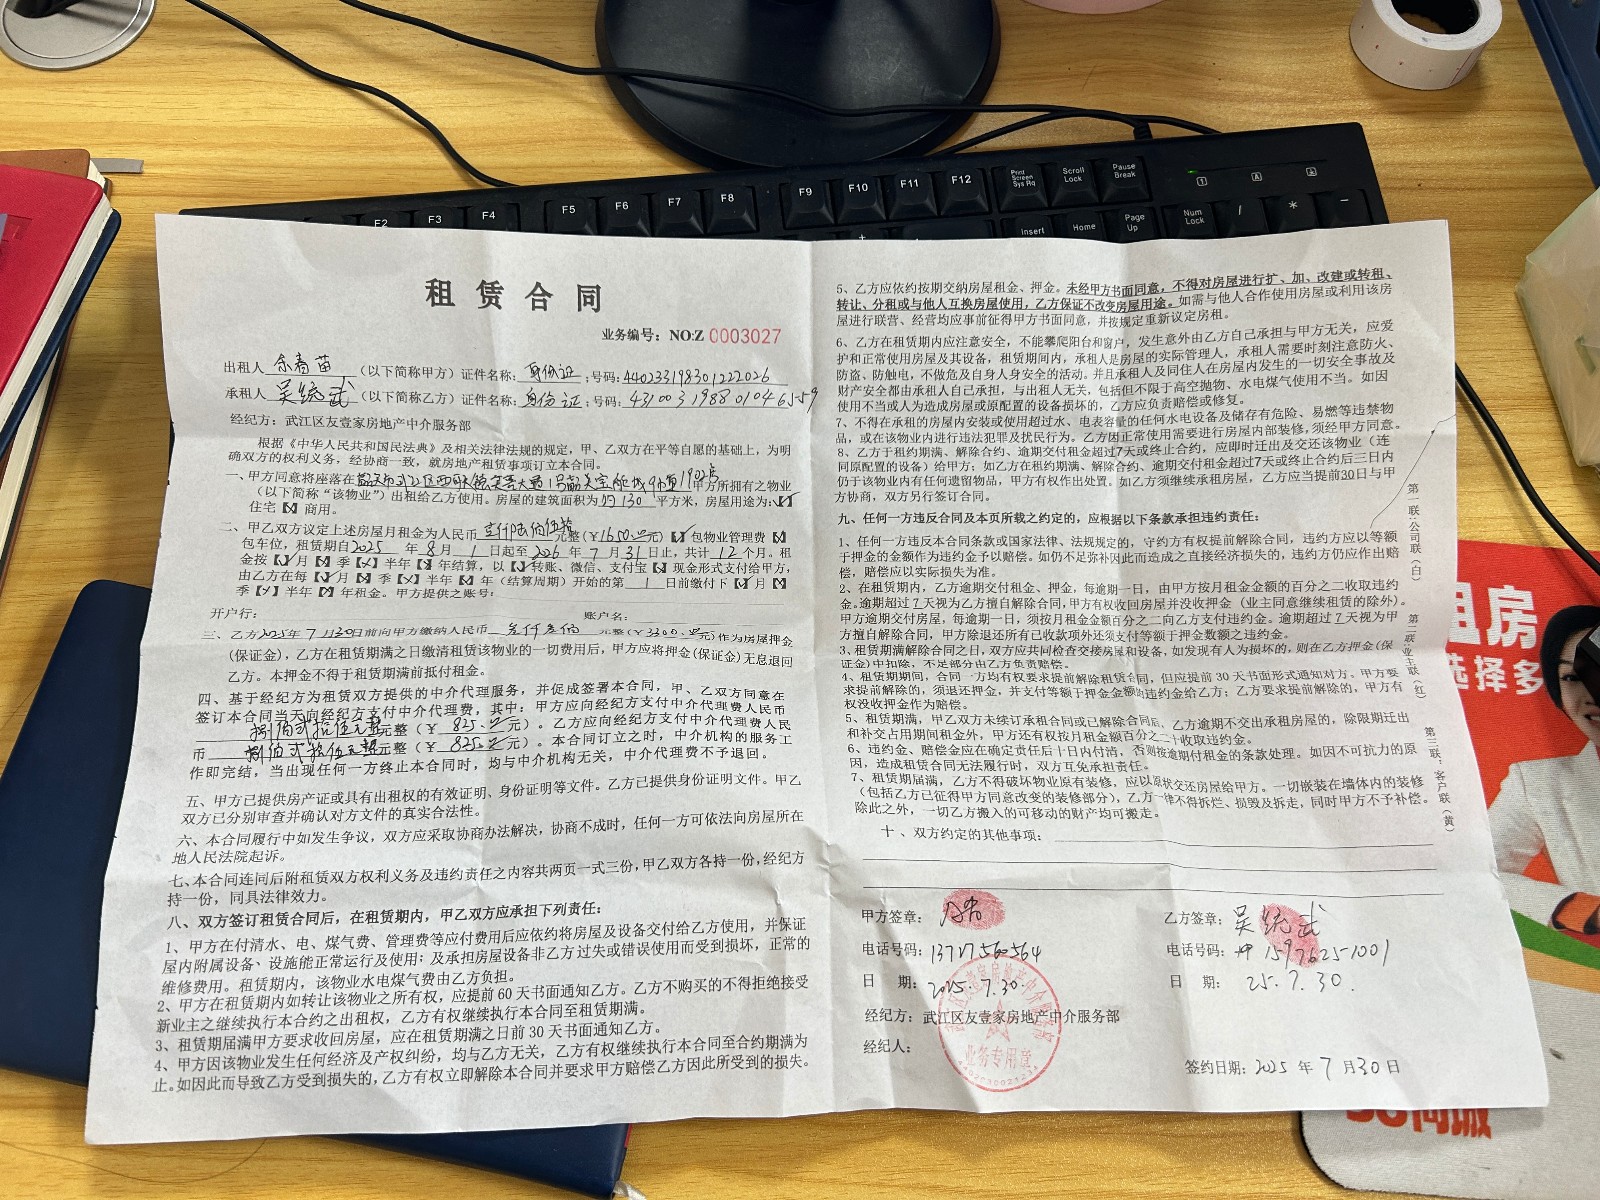 租赁合同
业务编号：NO:Z 0003027
出租人 余春苗 （以下简称甲方）证件名称：身份证；号码：440233198301222026
承租人 吴统武 （以下简称乙方）证件名称：身份证；号码：431003198801046559
经纪方：武江区友壹家房地产中介服务部
根据《中华人民共和国民法典》及相关法律法规的规定，甲、乙双方在平等自愿的基础上，为明
确双方的权利义务，经协商一致，就房地产租赁事项订立本合同。
一、甲方同意将座落在 武江区西 1903房 所拥有之物业
（以下简称“该物业”）出租给乙方使用。房屋的建筑面积为 约130 平方米，房屋用途为：【】
住宅【】商用。
二、甲乙双方议定上述房屋月租金为人民币 壹仟陆佰伍拾 元整（¥1650.00元）【】包物业管理费【】
包车位，租赁期自2025 年 8月 1 日起至 2026 年 7 月 31 日止，共计 12 个月。租
金按【✓】月【】季【】半年【】年结算，以【】转账、微信、支付宝【】现金形式支付给甲方，
由乙方在每【】月【】季【】半年【】年（结算周期）开始的第 1 日前缴付下【】月【】
季【】半年【】年租金。甲方提供之账号：
开户行： 账户名：
三、乙方2025年7月30日前向甲方缴纳人民币 叁仟叁佰 元整（¥3300.00元）作为房屋押金
（保证金），乙方在租赁期满之日缴清租赁该物业的一切费用后，甲方应将押金（保证金）无息退回
乙方。本押金不得于租赁期满前抵付租金。
四、基于经纪方为租赁双方提供的中介代理服务，并促成签署本合同，甲、乙双方同意在
签订本合同当天向经纪方支付中介代理费，其中：甲方应向经纪方支付中介代理费人民币
捌佰贰拾伍元整元整（¥ 825.00元）。乙方应向经纪方支付中介代理费人民
币 捌佰贰拾伍元整元整（¥ 825.00元）。本合同订立之时，中介机构的服务工
作即完结，当出现任何一方终止本合同时，均与中介机构无关，中介代理费不予退回。
五、甲方已提供房产证或具有出租权的有效证明、身份证明等文件。乙方已提供身份证明文件。甲乙
双方已分别审查并确认对方文件的真实合法性。
六、本合同履行中如发生争议，双方应采取协商办法解决，协商不成时，任何一方可依法向房屋所在
地人民法院起诉。
七、本合同连同后附租赁双方权利义务及违约责任之内容共两页一式三份，甲乙双方各持一份，经纪方
持一份，同具法律效力。
八、双方签订租赁合同后，在租赁期内，甲乙双方应承担下列责任：
1、甲方在付清水、电、煤气费、管理费等应付费用后应依约将房屋及设备交付给乙方使用，并保证
屋内附属设备、设施能正常运行及使用；及承担房屋设备非乙方过失或错误使用而受到损坏，正常的
维修费用。租赁期内，该物业水电煤气费由乙方负担。
2、甲方在租赁期内如转让该物业之所有权，应提前60天书面通知乙方。乙方不购买的不得拒绝接受
新业主之继续执行本合约之出租权，乙方有权继续执行本合同至租赁期满。
3、租赁期届满甲方要求收回房屋，应在租赁期满之日前30天书面通知乙方。
4、甲方因该物业发生任何经济及产权纠纷，均与乙方无关，乙方有权继续执行本合同至合约期满为
止。如因此而导致乙方受到损失的，乙方有权立即解除本合同并要求甲方赔偿乙方因此所受到的损失。
5、乙方应依约按期交纳房屋租金、押金。未经甲方书面同意，不得对房屋进行扩、加、改建或转租、
转让、分租或与他人互换房屋使用，乙方保证不改变房屋用途。如需与他人合作使用房屋或利用该房
屋进行联营、经营均应事前征得甲方书面同意，并按规定重新议定房租。
6、乙方在租赁期内应注意安全，不能攀爬阳台和窗户，发生意外由乙方自己承担与甲方无关，应爱
护和正常使用房屋及其设备，租赁期间内，承租人是房屋的实际管理人，承租人需要时刻注意防火、
防盗、防触电，不做危及自身人身安全的活动。并且承租人及同住人在房屋内发生的一切安全事故及
财产安全都由承租人自己承担，与出租人无关，包括但不限于高空抛物、水电煤气使用不当。如因
使用不当或人为造成房屋或原配置的设备损坏的，乙方应负责赔偿或修复。
7、不得在承租的房屋内安装或使用超过水、电表容量的任何水电设备及储存有危险、易燃等违禁物
品，或在该物业内进行违法犯罪及扰民行为。乙方因正常使用需要进行房屋内部装修，须经甲方同意。
8、乙方于租约期满、解除合约、逾期交付租金超过7天或终止合约，应即时迁出及交还该物业（连
同原配置的设备）给甲方；如乙方在租约期满、解除合约、逾期交付租金超过7天或终止合约后三日内
仍于该物业内有任何遗留物品，甲方有权作出处置。如乙方须继续承租房屋，乙方应当提前30日与甲
方协商，双方另行签订合同。
九、任何一方违反合同及本页所载之约定的，应根据以下条款承担违约责任：
1、任何一方违反本合同条款或国家法律、法规规定的，守约方有权提前解除合同，违约方应以等额
于押金的金额作为违约金予以赔偿。如仍不足弥补因此而造成之直接经济损失的，违约方仍应作出赔
偿，赔偿应以实际损失为准。
2、在租赁期内，乙方逾期交付租金、押金，每逾期一日，由甲方按月租金金额的百分之二收取违约
金。逾期超过7天视为乙方擅自解除合同，甲方有权收回房屋并没收押金（业主同意继续租赁的除外）。
甲方逾期交付房屋，每逾期一日，须按月租金金额百分之二向乙方支付违约金。逾期超过7天视为甲
方擅自解除合同，甲方除退还所有已收款项外还须支付等额于押金数额之违约金。
3、租赁期满解除合同之日，双方应共同检查交接房屋和设备，如发现有人为损坏的，则在乙方押金（保
证金）中扣除，不足部分由乙方负责赔偿。
4、租赁期期间，合同一方均有权要求提前解除租赁合同，但应提前30天书面形式通知对方。甲方要
求提前解除的，须退还押金，并支付等额于押金金额的违约金给乙方；乙方要求提前解除的，甲方有
权没收押金作为赔偿。
5、租赁期满，甲乙双方未续订承租合同或已解除合同后，乙方逾期不交出承租房屋的，除限期迁出
和补交占用期间租金外，甲方还有权按月租金额百分之二十收取违约金。
6、违约金、赔偿金应在确定责任后十日内付清，否则按逾期付租金的条款处理。如因不可抗力的原
因，造成租赁合同无法履行时，双方互免承担责任。
7、租赁期届满，乙方不得破坏物业原有装修，应以原状交还房屋给甲方。一切嵌装在墙体内的装修
（包括乙方已征得甲方同意改变的装修部分），乙方一律不得拆烂、损毁及拆走，同时甲方不予补偿。
除此之外，一切乙方搬入的可移动的财产均可搬走。
十、双方约定的其他事项：
甲方签章：
电话号码：13727560564
日 期：2025.7.30.
经纪方：武江区友壹家房地产中介服务部
经纪人：
业务专用章
乙方签章：吴统武
电话号码：15976251001
日 期：25.7.30.
签约日期：2025 年 7 月 30 日
第一联：公司联（白）
第二联：业主联（红）
第三联：客户联（黄）
租房
选择多
F2
F3
F4
F5
F6
F7
F8
F9
F10
F11
F12
Print Screen Sys Rq
Scroll Lock
Pause Break
Insert
Home
Page Up
Num Lock
/
*
-